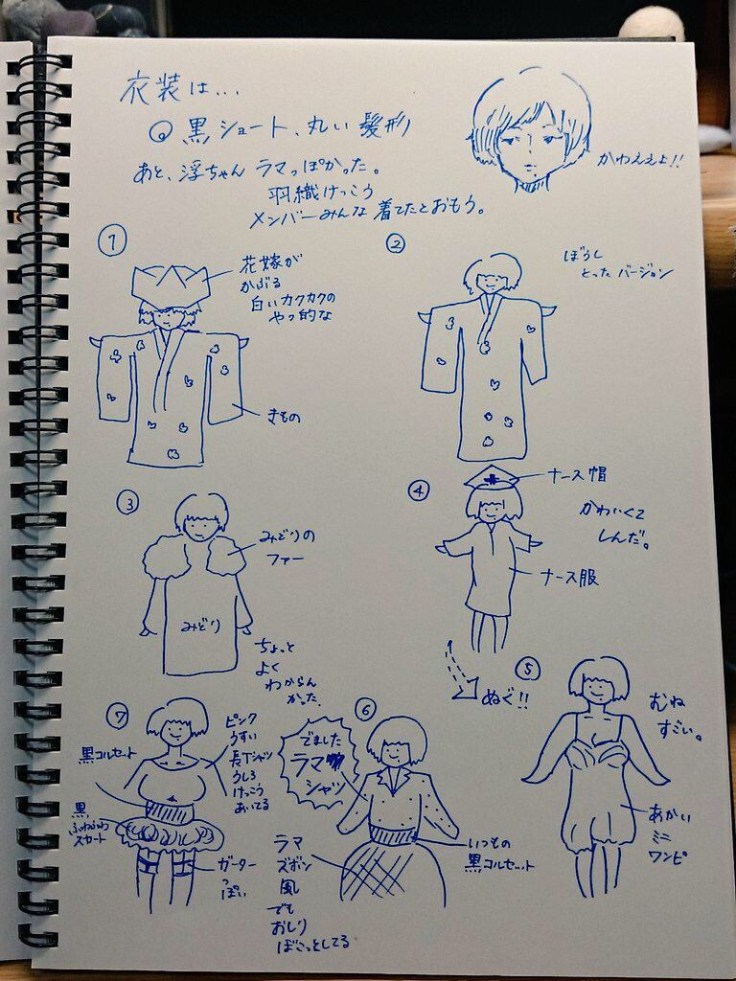 衣装は...
◎ 黒ショート、丸い髪形
かわええよ!!
あと、浮ちゃん ラマっぽかった。
羽織けっこう
メンバーみんな着てたとおもう。
①
花嫁が
かぶる
白いカクカクの
やつ的な
きもの
②
ぼうし
とったバージョン
③
みどりの
ファー
みどり
ちょっと
よく
わからん
かった
④
ナース帽
かわいくて
しんだ。
ナース服
ぬぐ!!
⑤
むね
すごい。
あかい
ミニ
ワンピ
⑥
でました
ラマ
シャツ
いつもの
黒コルセット
ラマ
ズボン
風
でも
おしり
ぼこっとしてる
⑦
ピンク
うすい
長Tシャツ
うしろ
けっこう
あいてる
黒コルセット
黒
ふわふわ
スカート
ガーター
っぽい